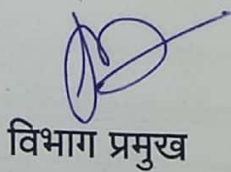 विभाग प्रमुख